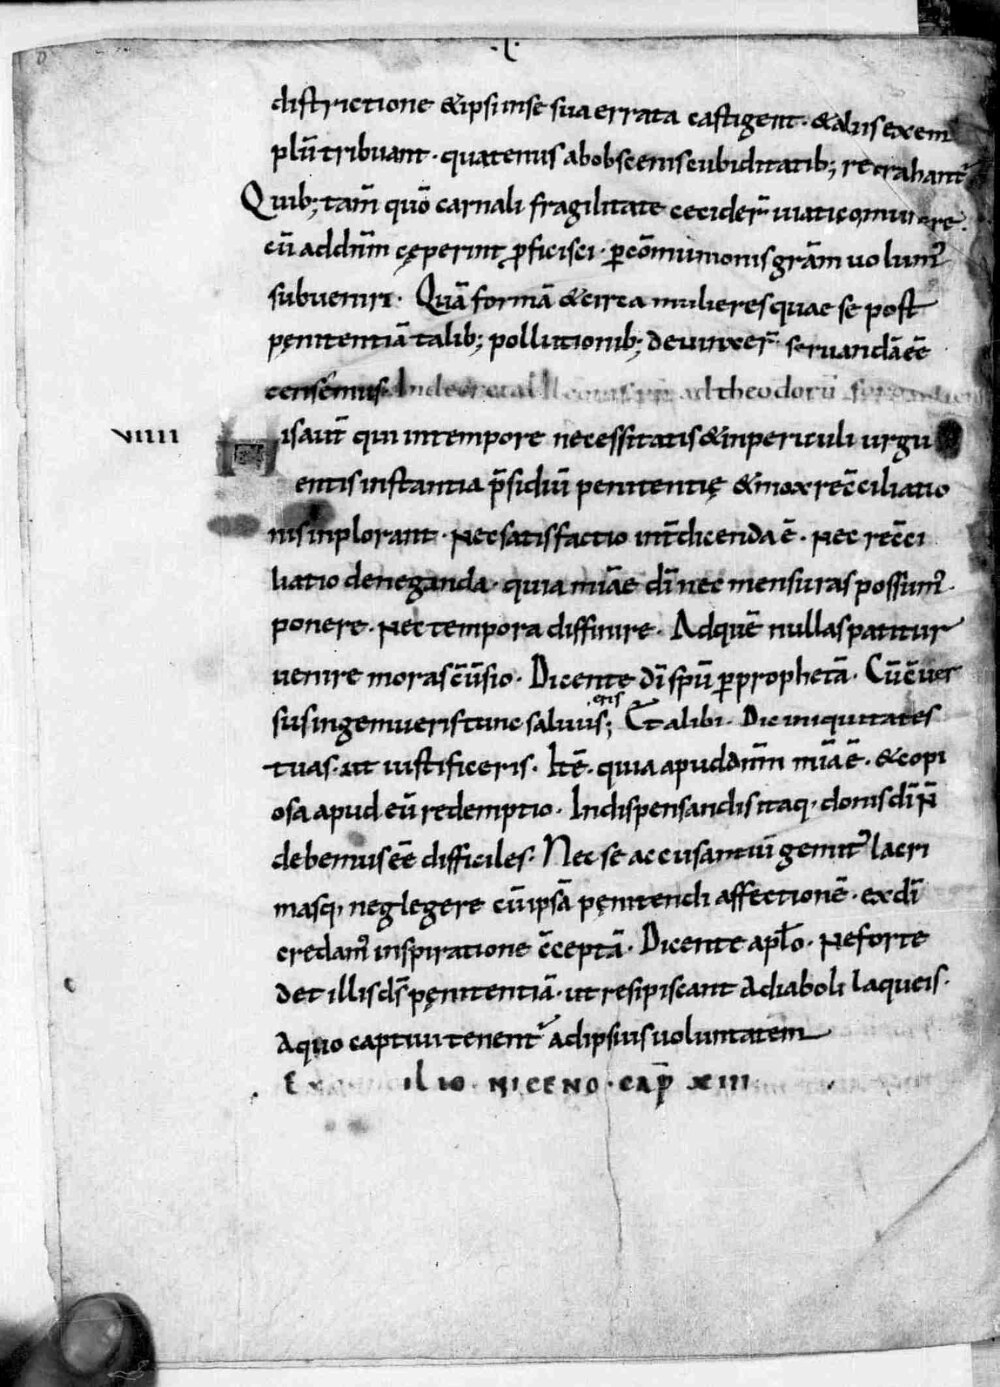 districtione & ipsi in se sua errata castigent · & aliis exem
plū tribuant · quatenus ab obscenis cubiditatib; retrahant̄
Quib; tam̄ quō carnali fragilitate cecider̄ viatico
cū ad dn̄m cęperint ꝓficisci · ꝑ cōmunionis grām volum᾽
subveniri · Quā formā & circa mulieres quae se post
pęnitentiā talib; pollutionib; devinxer̄ servandā eē
censemus · In decretal ad theodorū
VIIII
His aut̄ qui in tempore necessitatis & in periculi urgu
entis instantia p̄sidiū penitentię & mox rec̄ciliatio
nis inplorant · Nec satisfactio int̄dicenda ē · Nec rec̄ci
liatio deneganda · quia mīae dī nec mensuras possum᾽
ponere · Nec tempora diffinire · Ad quē nullas patitur
venire moras c̄v̄sio · Dicente dī spū ꝑ prophetā · Cū c̄ver
sus ingemueris tunc salvus eris; Et alibi · Dic iniquitates
tuas · ut iustificeris · Itē · quia apud dn̄m mīa ē · & copi
osa apud eū redemptio · In dispensandis itaq· donis dī n̄
debemus eē difficiles · Nec se accusantiū gemit᾽ lacri
masq, neglegere cū ipsā pęnitendi affectionē · ex dī
credam᾽ inspiratione c̄ceptā · Dicente apłо · Ne forte
det illis ds̄ pęnitentiā · ut resipiscant a diaboli laqueis ·
A quo captivi tenent̄ ad ipsius voluntatem
ilio · NICENO · CAP̄ XIII